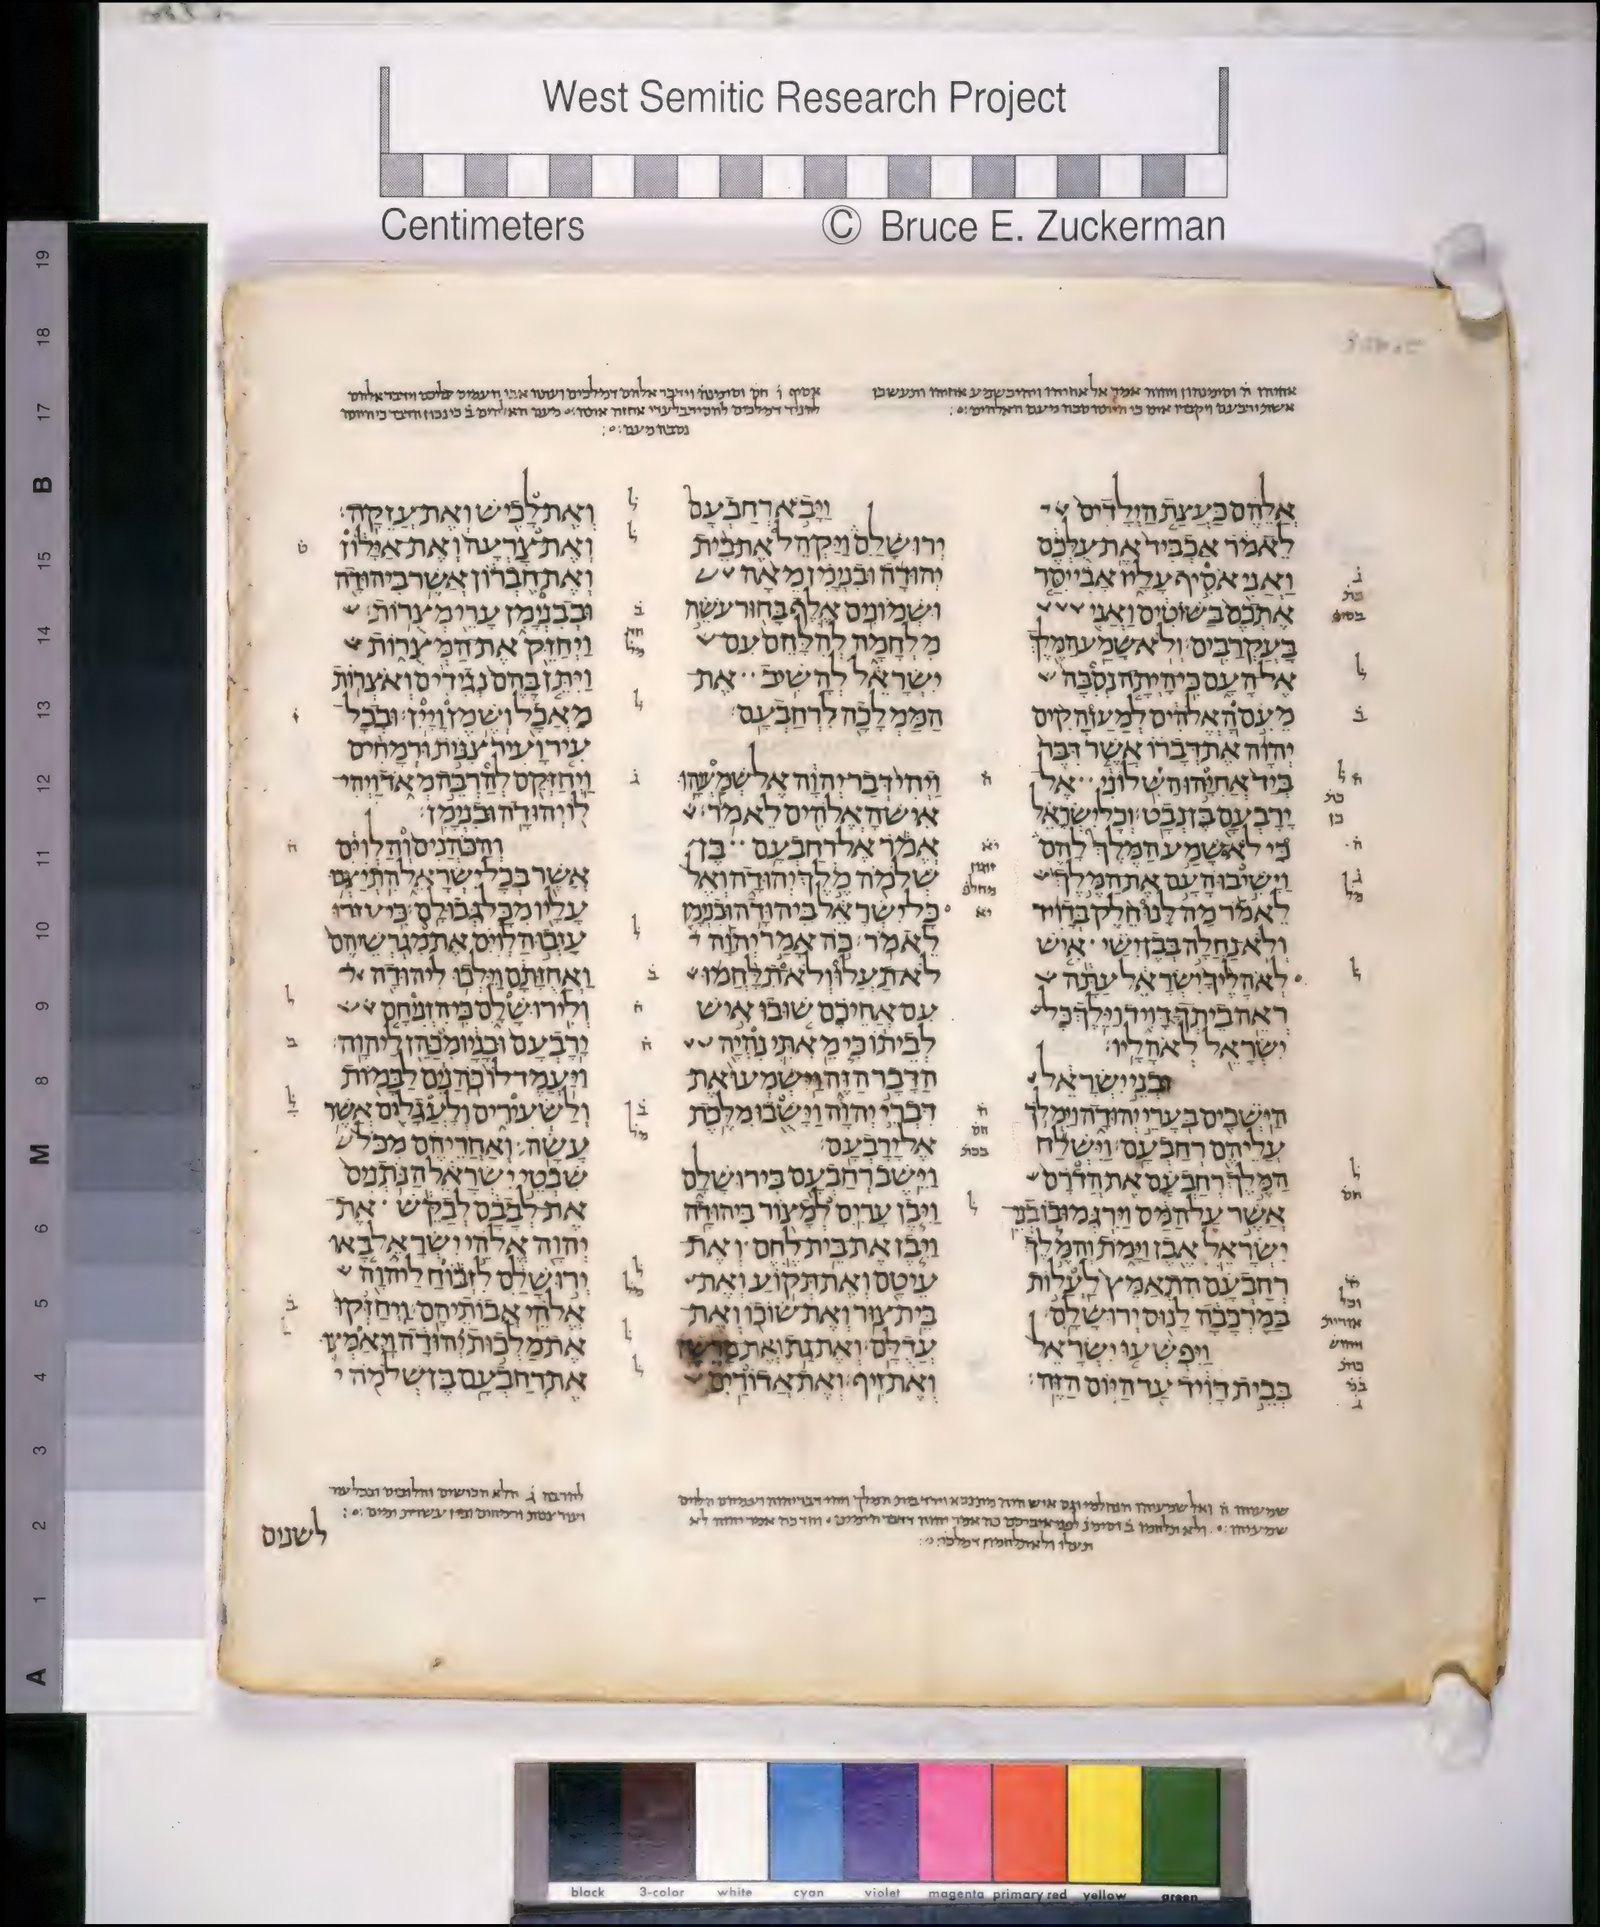 West Semitic Research Project
Centimeters © Bruce E. Zuckerman
אליהם כעצת הילדים
לאמר אכביד את עלכם
ואני אסיף עליו אבי יסר
אתכם בשוטים ואני
בעקרבים ולא שמע המלך
אל העם כי היתה נסבה
מעם האלהים למען הקים
יהוה את דברו אשר דבר
ביד אחיהו השלוני אל
ירבעם בן נבט וכל ישראל
כי לא שמע המלך להם
וישיבו העם את המלך
לאמר מה לנו חלק בדויד
ולא נחלה בבן ישי איש
לאהליך ישראל עתה
ראה ביתך דויד וילך כל
ישראל לאהליו
ובני ישראל
הישבים בערי יהודה וימלך
עליהם רחבעם וישלח
המלך רחבעם את הדרם
אשר על המס וירגמו בו בני
ישראל אבן וימת והמלך
רחבעם התאמץ לעלות
במרכבה לנוס ירושלם
ויפשעו ישראל
בבית דויד עד היום הזה
ויבא רחבעם
ירושלם ויקהל את בית
יהודה ובנימן מאה
ושמונים אלף בחור עשה
מלחמה להלחם עם
ישראל להשיב את
הממלכה לרחבעם
ויהי דבר יהוה אל שמעיהו
איש האלהים לאמר
אמר אל רחבעם בן
שלמה מלך יהודה ואל
כל ישראל ביהודה ובנימן
לאמר כה אמר יהוה
לא תעלו ולא תלחמו
עם אחיכם שובו איש
לביתו כי מאתי נהיה
הדבר הזה וישמעו את
דברי יהוה וישבו מלכת
אל ירבעם
וישב רחבעם בירושלם
ויבן ערים למצור ביהודה
ויבן את בית לחם ואת
עיטם ואת תקוע ואת
בית צור ואת שוכו ואת
עדלם ואת גת ואת מרשה
ואת זיף ואת אדורים
ואת לכיש ואת עזקה
ואת צרעה ואת אילון
ואת חברון אשר ביהודה
ובבנימן ערי מצרות
ויחזק את המצרות
ויתן בהם נגידים ואצרות
מאכל ושמן ויין ובכל
עיר ועיר צנות ורמחים
ויחזקם להרבה מאד ויהי
לו יהודה ובנימן
והכהנים והלוים
אשר בכל ישראל התיצבו
עליו מכל גבולם כי עזבו
הלוים את מגרשיהם
ואחזתם וילכו ליהודה
ולירושלם כי הזניחם
ירבעם ובניו מכהן ליהוה
ויעמד לו כהנים לבמות
ולשעירים ולעגלים אשר
עשה ואחריהם מכל
שבטי ישראל הנתנים
את לבבם לבקש את
יהוה אלהי ישראל באו
ירושלם לזבוח ליהוה
אלהי אבותיהם ויחזקו
את מלכות יהודה ויאמצו
את רחבעם בן שלמה
לשנים
black 3-color white cyan violet magenta primary red yellow green
19 18 17 B 15 14 13 12 11 10 9 8 M 6 5 4 3 2 1 A